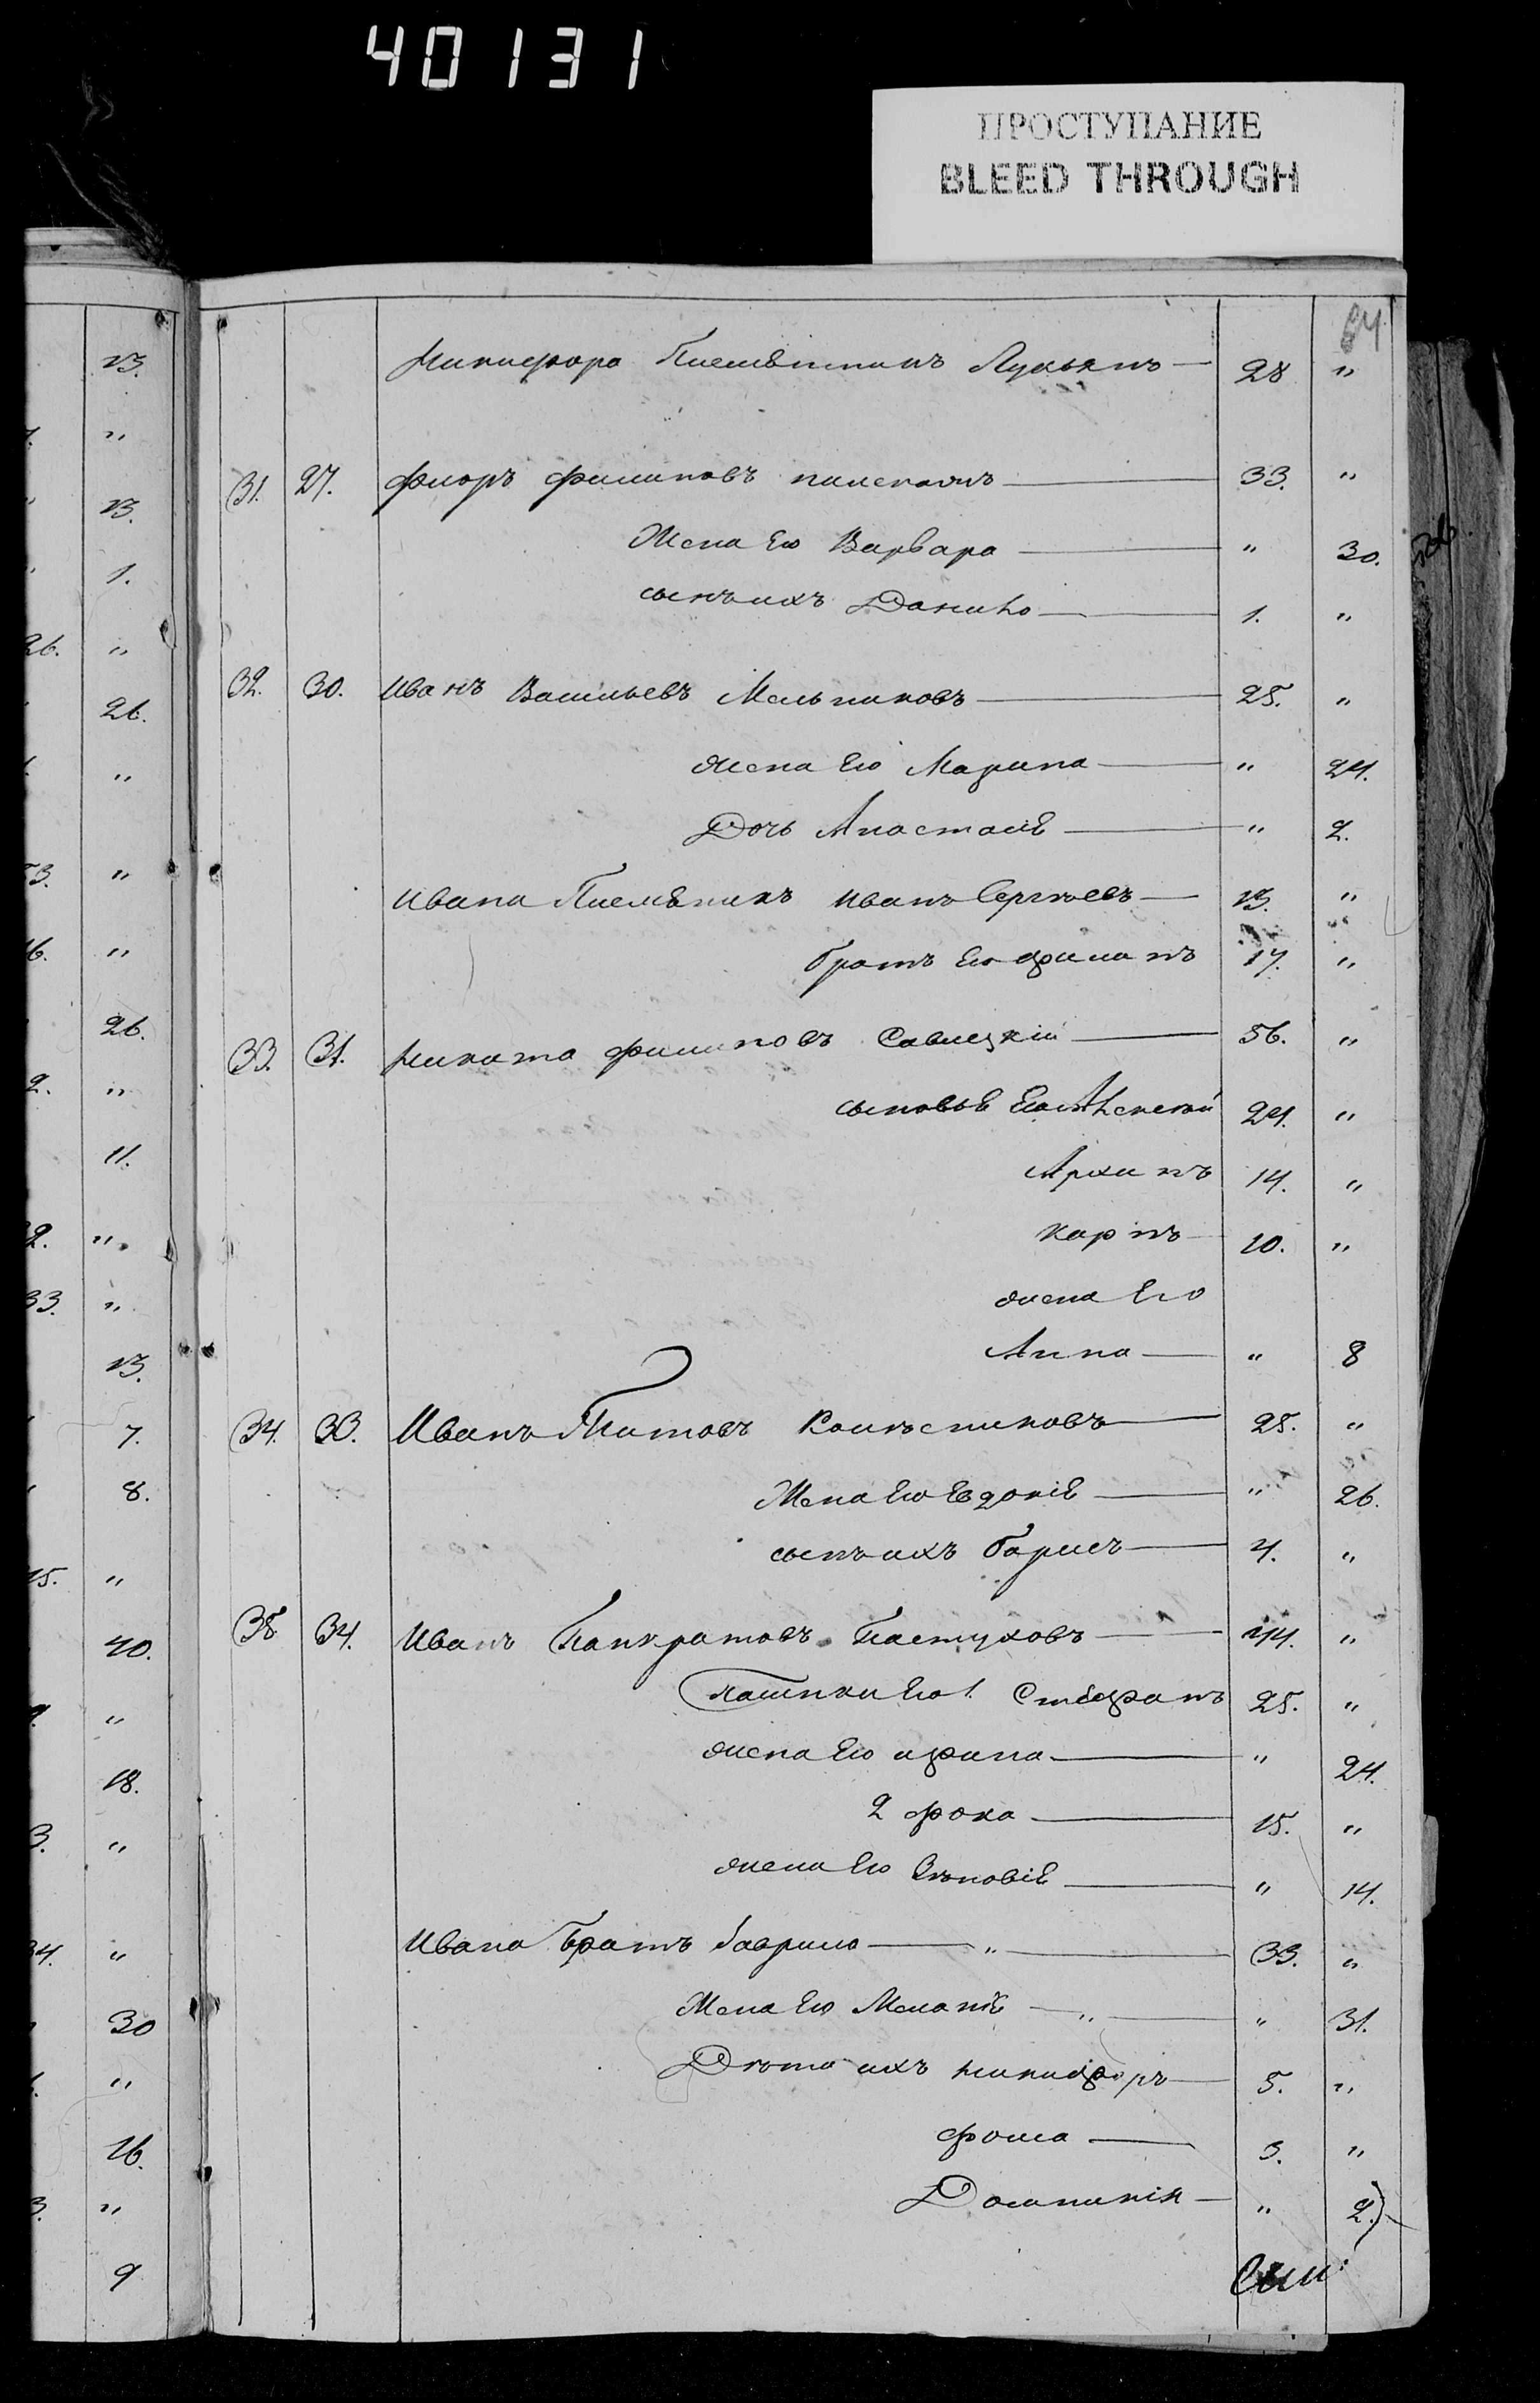 40131
ПРОСТУПАНИЕ
BLEED THROUGH
64
Никифора Племѣнникъ Лукьянъ — 28 "
31. 27. Флоръ Филиповъ — 33. "
Жена Его Варвара — " 30.
сынъ ихъ Данило — 1. "
32. 30. Иванъ Васильевъ Мельниковъ — 25. "
жена Его Марина — " 24.
Дочь Анастасіѣ — " 2.
Ивана Племѣникъ Иванъ Сергѣевъ — 13. "
братъ Его Филипъ 17. "
33. 31. Никита Филиповъ Савицкій — 56. "
сыновьѣ Его Алексѣй 24. "
Архипъ 14. "
Карпъ 10. "
жена Его
Анна — " 8
34. 33. Иванъ Титовъ — 25. "
Жена Его Евдокіѣ — " 26.
сынъ ихъ Борисъ — 4. "
35 34. Иванъ Панкратовъ Пастуховъ — 44. "
Его 1. Стефанъ 25. "
жена Его Афима — " 24.
2 Фока — 15. "
жена Его Зѣновіѣ — " 14.
Ивана Братъ Гаврило — " — 33. "
Жена Его Меланіѣ — " — " 31.
Дѣти ихъ Никифоръ — 5. "
Фома — 3. "
Домникія — " 2.
13.
"
13.
1.
26. "
26.
"
53. "
16. "
26.
2. "
11.
2. "
33. "
13.
7.
8.
15. "
40.
9. "
18.
3. "
34. "
30
"
16.
3. "
9